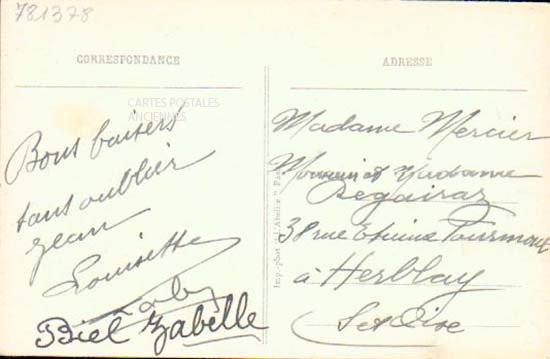 781378
CORRESPONDANCE
ADRESSE
CARTES POSTALES
ANCIENNES
Bons baisers
sans oublier
Jean
Louisette
Biel Zabelle
Madame Mercier
Monsieur et Madame
38 rue Etienne
à Herblay
Set Oise
Imp.-phot de l'Abeille "Par